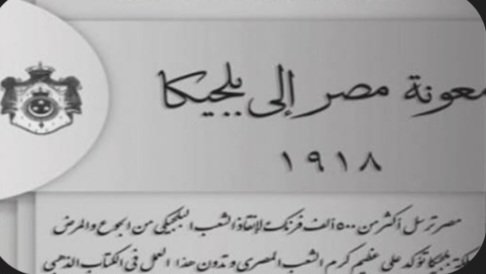 معونة مصر إلى بلجيكا
١٩١٨
مصر ترسل أكثر من ٥٠٠ ألف فرنك لإنقاذ الشعب البلجيكي من الجوع والمرض
بلجيكا تؤكد على عظيم كرم الشعب المصري وتدون هذا العمل في الكتاب الذهبي